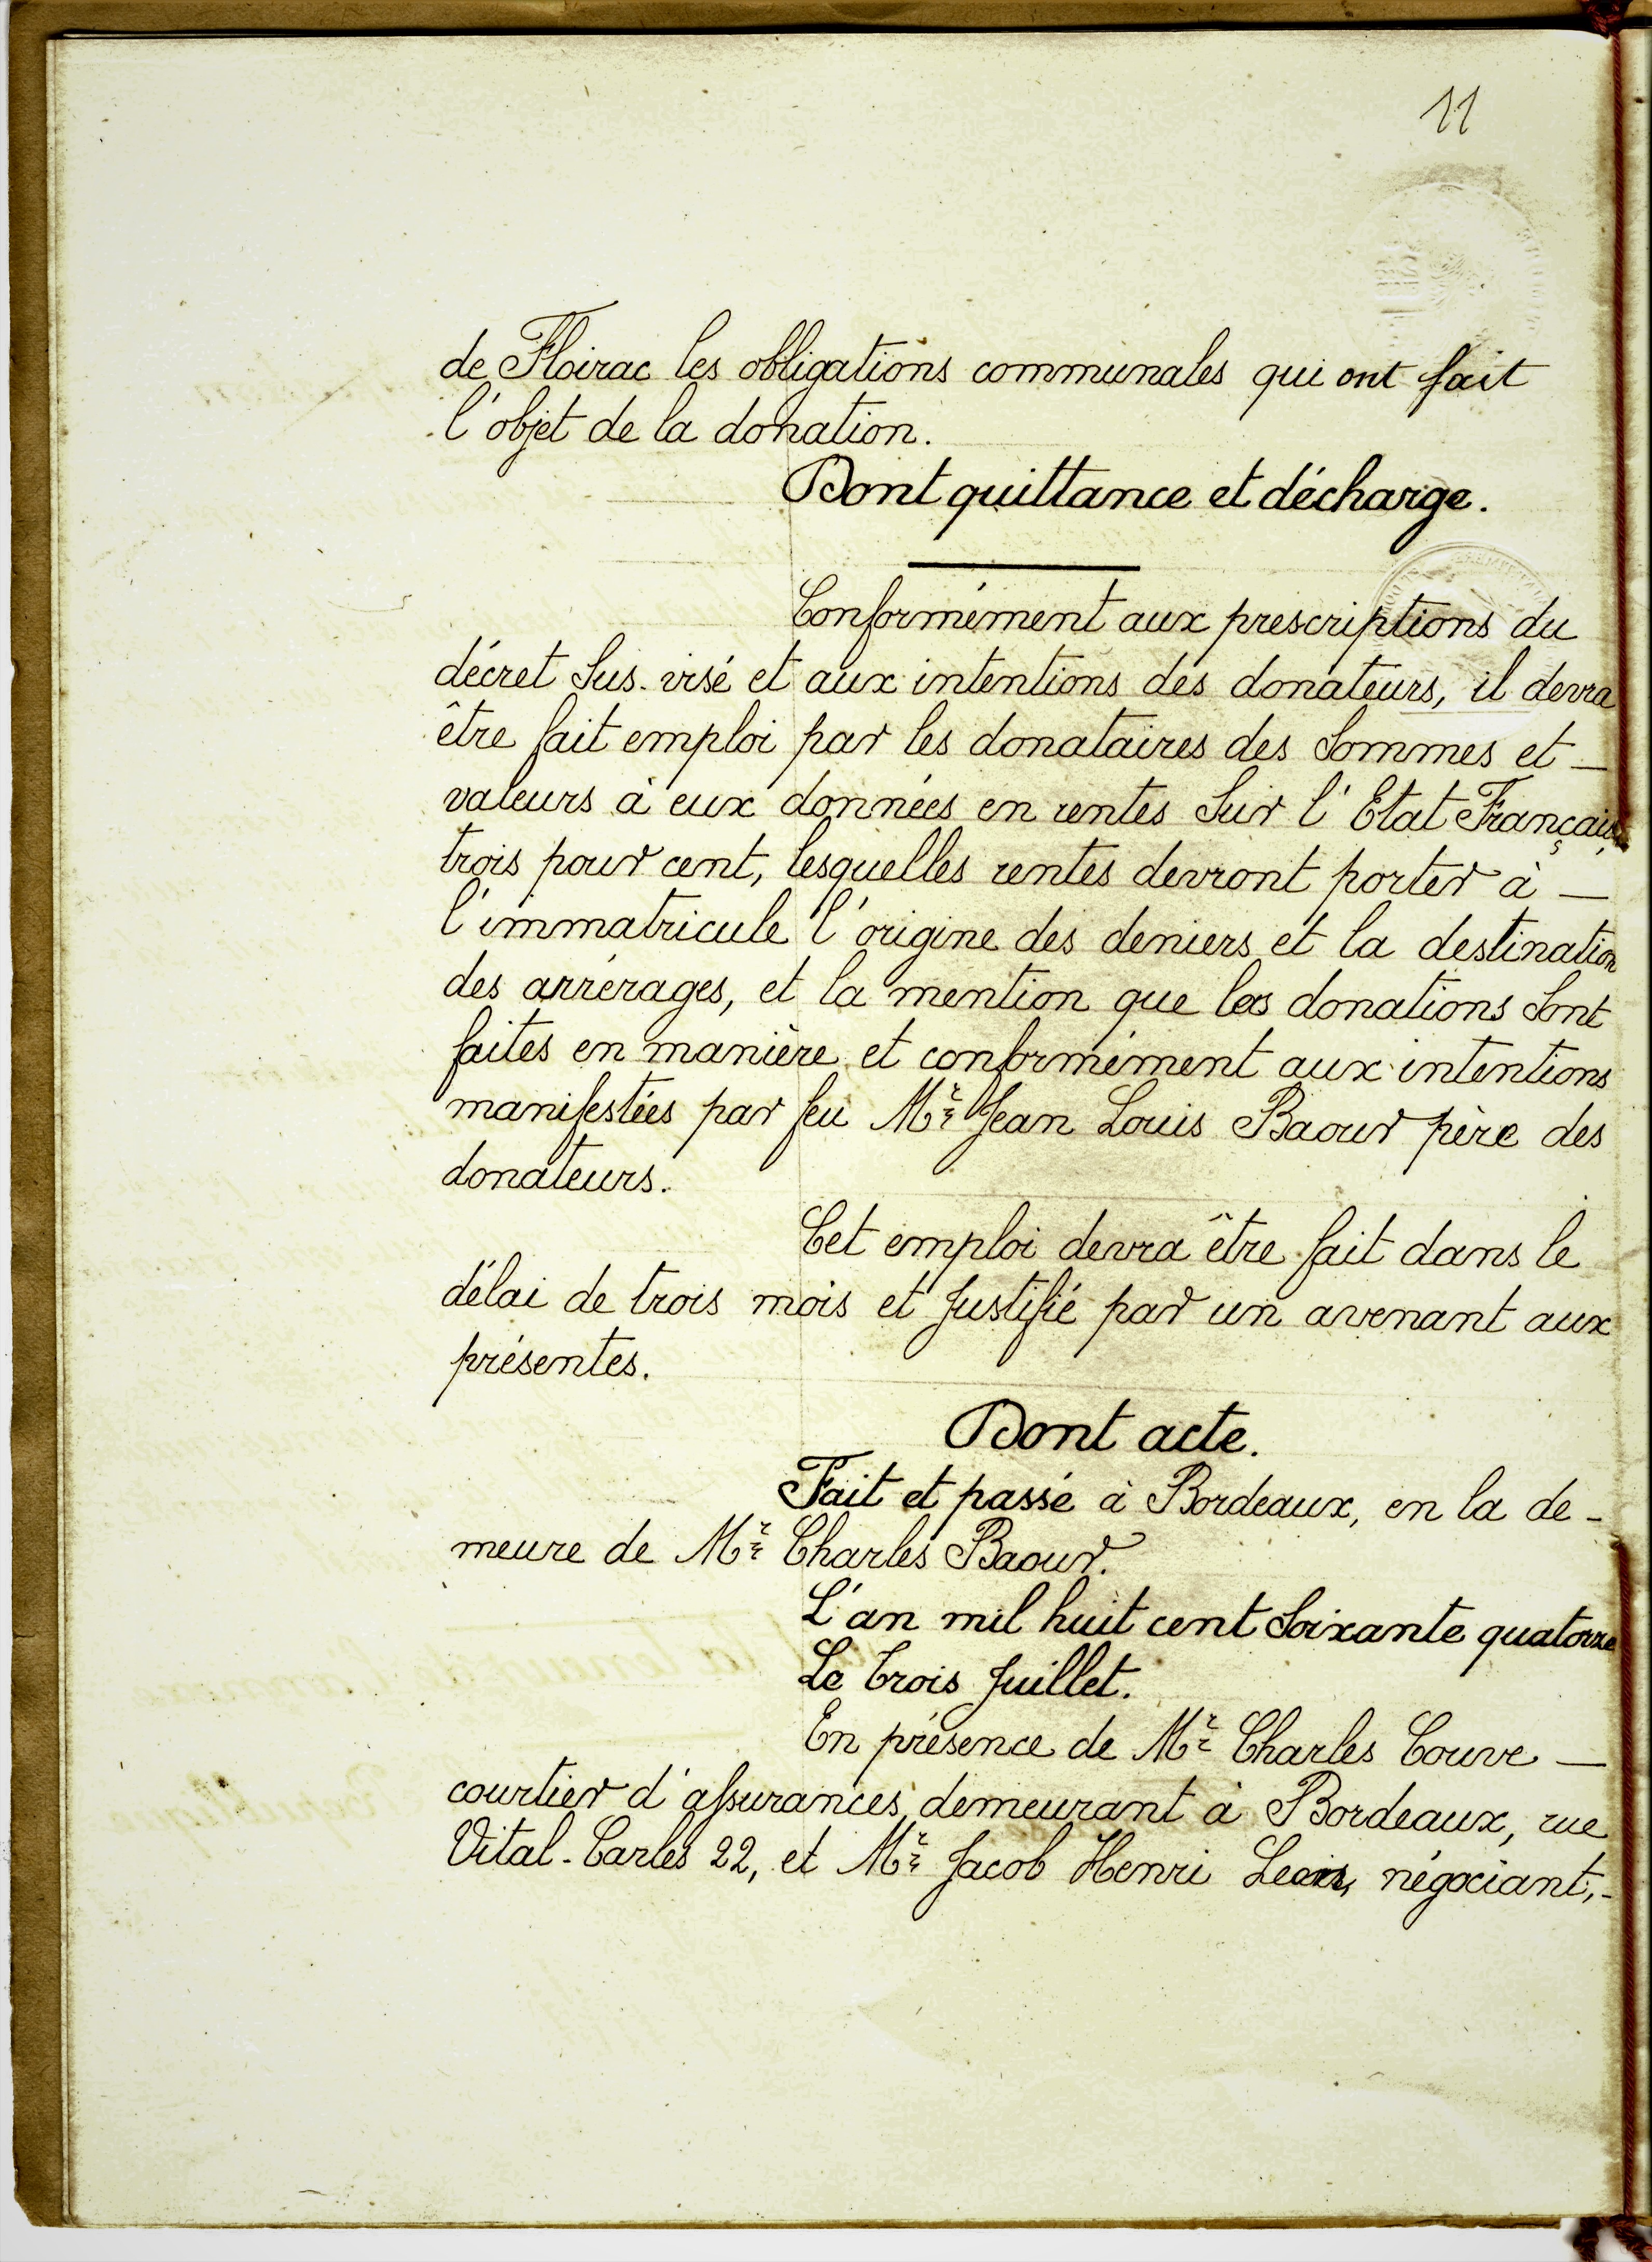 11
de Floirac les obligations communales qui ont fait
l'objet de la donation.
Dont quittance et décharge.
Conformément aux prescriptions du
décret sus-visé et aux intentions des donateurs, il devra
être fait emploi par les donataires des sommes et —
valeurs à eux données en rentes sur l'Etat Français,
trois pour cent, lesquelles rentes devront porter à —
l'immatricule l'origine des deniers et la destination
des arrérages, et la mention que les donations sont
faites en manière et conformément aux intentions
manifestées par feu Mr Jean Louis Baour père des
donateurs.
Cet emploi devra être fait dans le
délai de trois mois et justifié par un avenant aux
présentes.
Dont acte.
Fait et passé à Bordeaux, en la de-
meure de Mr Charles Baour.
L'an mil huit cent soixante quatorze
Le trois Juillet.
En présence de Mr Charles Couve —
courtier d'assurances, demeurant à Bordeaux, rue
Vital-Carles 22, et Mr Jacob Henri négociant,-